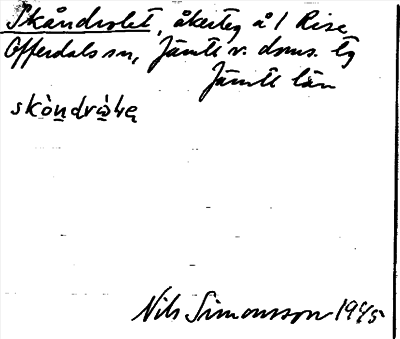 Skåndrolet, åkerteg å 1 Rise
Offerdals sn, Jämtl v. doms. tg
Jämtl län
skòndrὰłeą
Nils Simonsson 1945